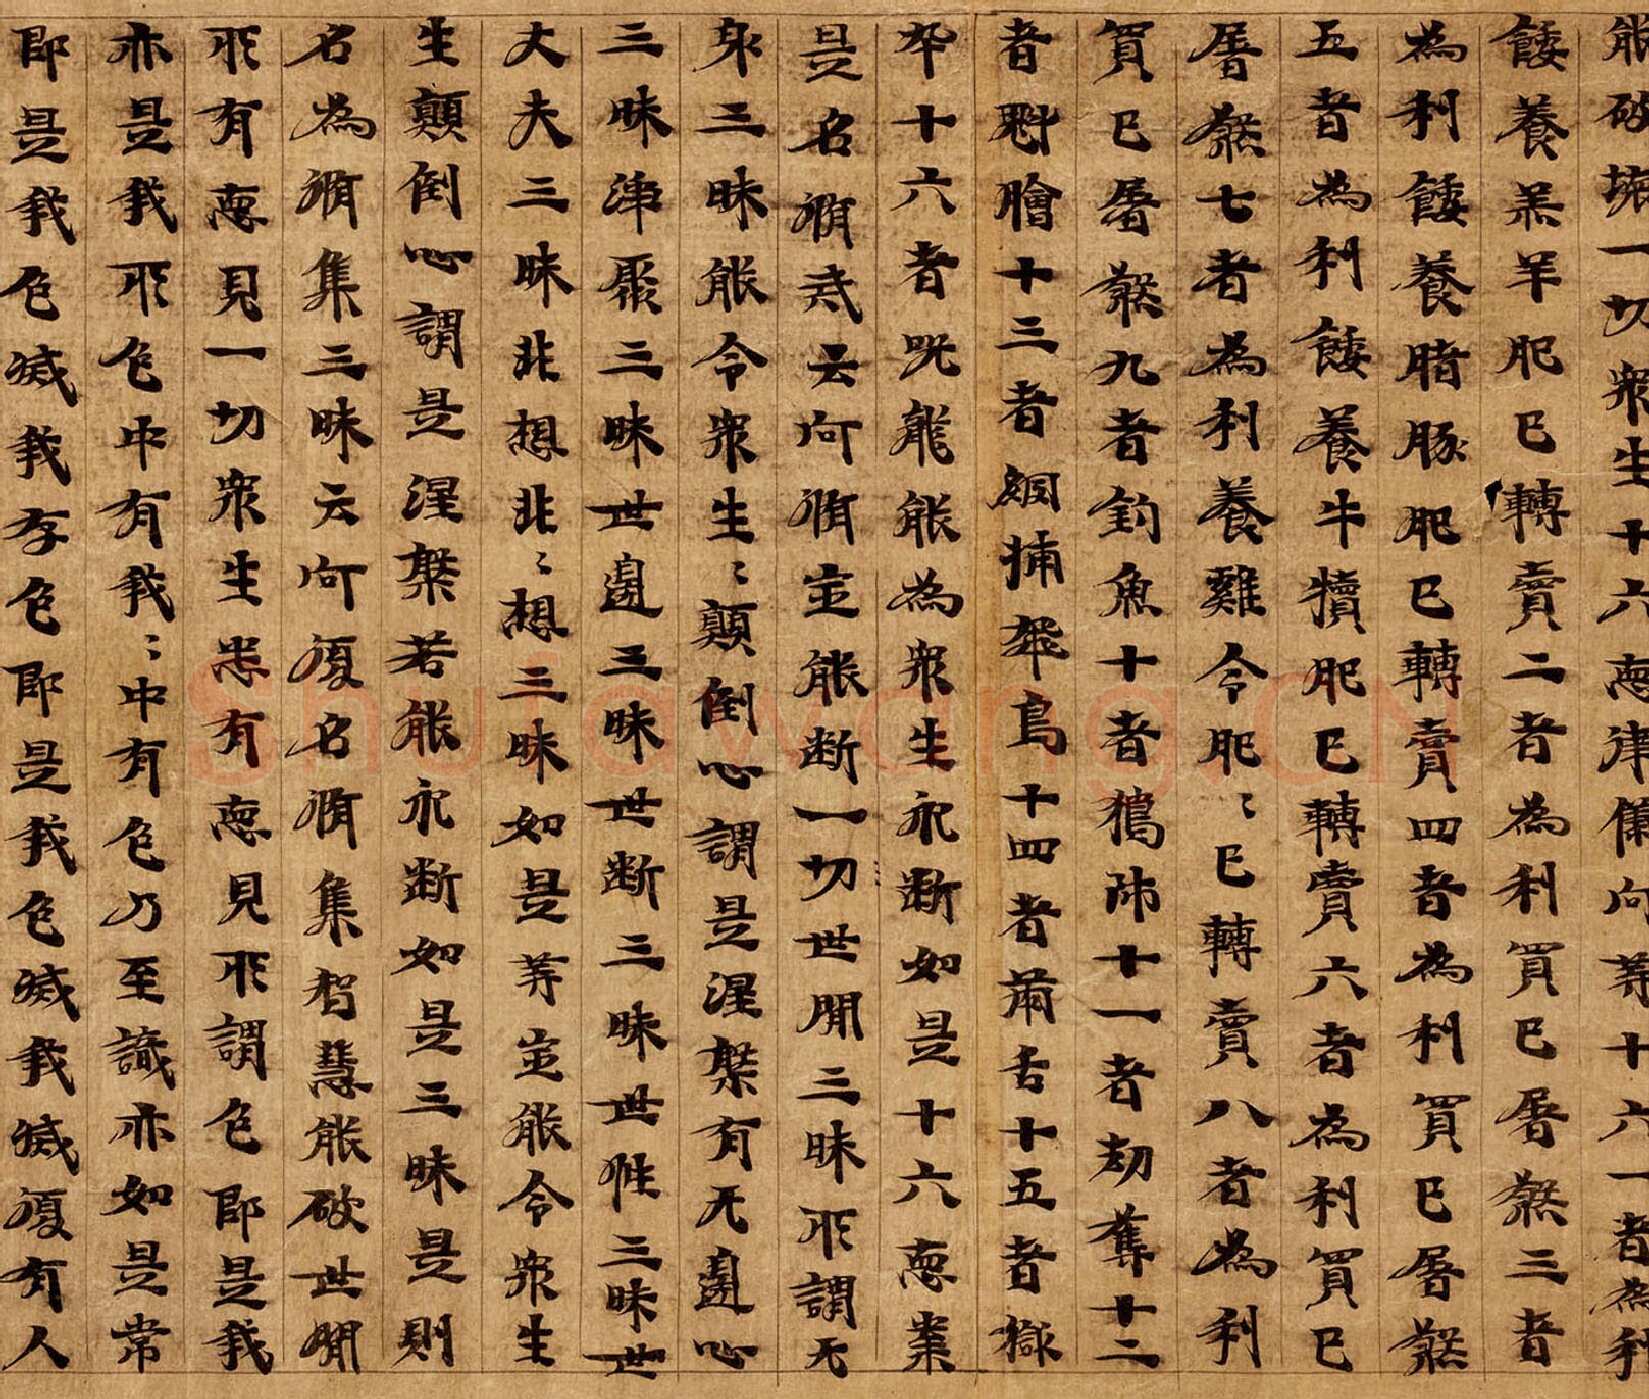 能破壞一切衆生十六惡律儀何等十六一者為利
餧養羔羊肥已轉賣二者為利買已屠煞三者
為利餧養猪豚肥已轉賣四者為利買已屠煞
五者為利餧養牛犢肥已轉賣六者為利買已
屠煞七者為利養雞令肥〻已轉賣八者為利
買已屠煞九者釣魚十者獦師十一者劫奪十二
者魁膾十三者網捕飛鳥十四者兩舌十五者獄
卒十六者咒龍能為衆生永斷如是十六惡業
是名脩戒云何脩定能断一切世間三昧所謂无
身三昧能令衆生〻顛倒心謂是涅槃有无邊心
三昧淨聚三昧世邊三昧世断三昧世性三昧世
丈夫三昧非想非〻想三昧如是等定能令衆生
生顛倒心謂是涅槃若能永断如是三昧是則
名為脩集三昧云何復名脩集智慧能破世間
所有惡見一切衆生悉有惡見所謂色即是我
亦是我所色中有我〻中有色乃至識亦如是常
即是我色滅我存色即是我色滅我滅復有人
Shufawang.CN